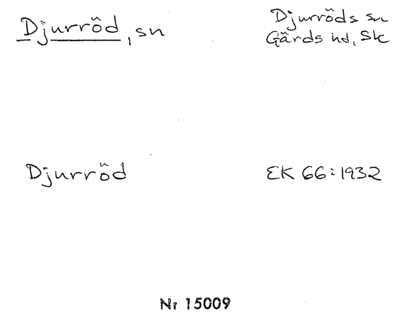 Djurröd, sn
Djurröds sn
Gärds hd, Sk
Djurröd
EK 66:1932
Nr 15009